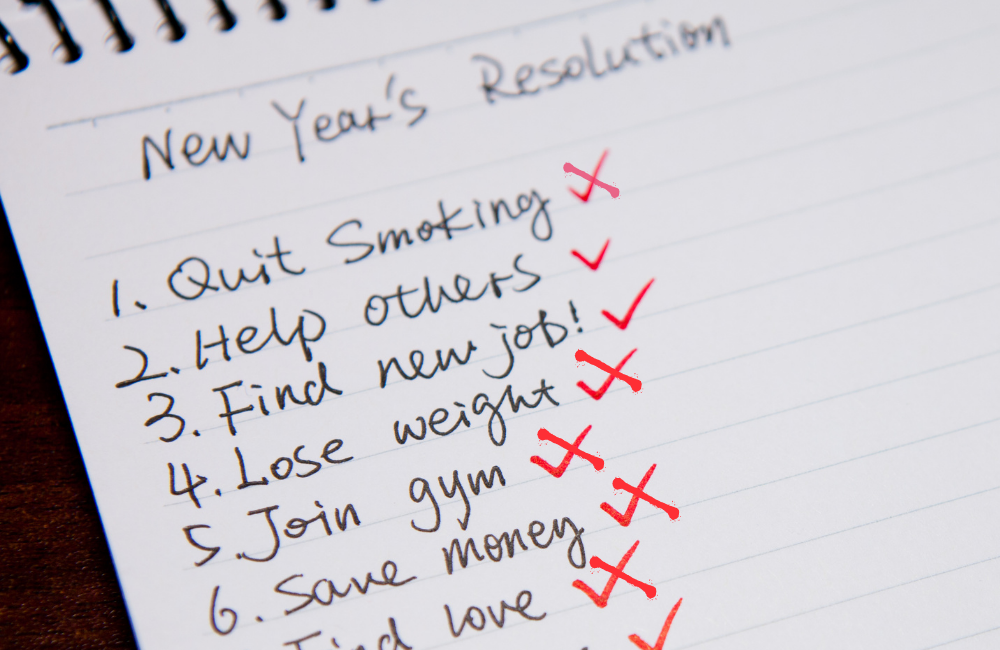 New Year's Resolution
1. Quit Smoking
2. Help others
3. Find new job!
4. Lose weight
5. Join gym
6. Save money
Find love